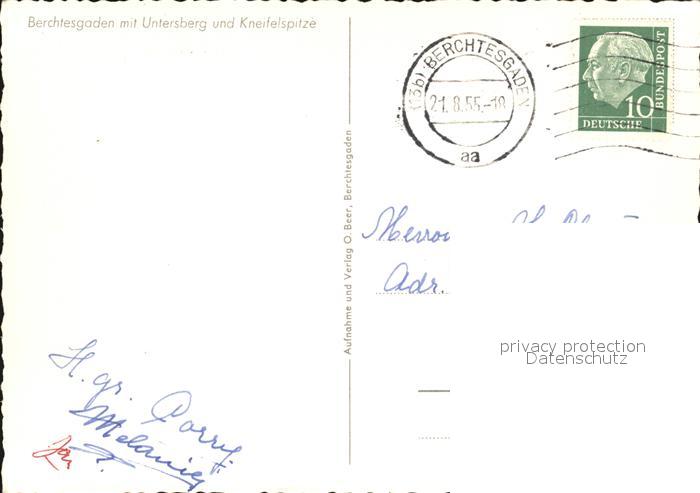 Berchtesgaden mit Untersberg und Kneifelspitze
(13b) BERCHTESGADEN
21.8.55.-18
aa
10
DEUTSCHE
BUNDESPOST
Aufnahme und Verlag O. Beer, Berchtesgaden
Adr.
privacy protection
Datenschutz
H. gr.
Melanie